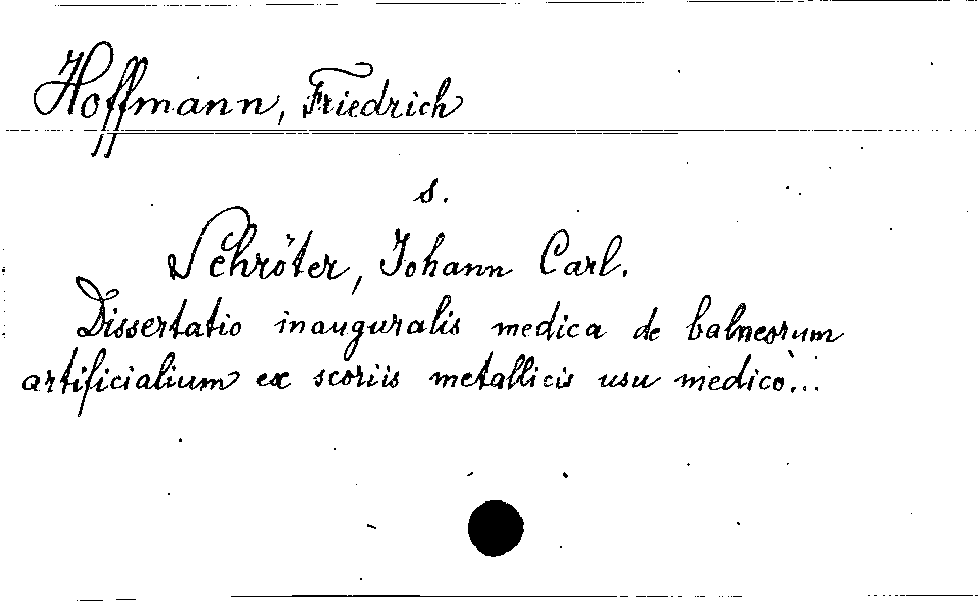 Hoffmann, Friedrich
s.
Schröter, Johann Carl.
Dissertatio inauguralis medica de balneorum
artificialium ex scoriis metallicis usu medicò...